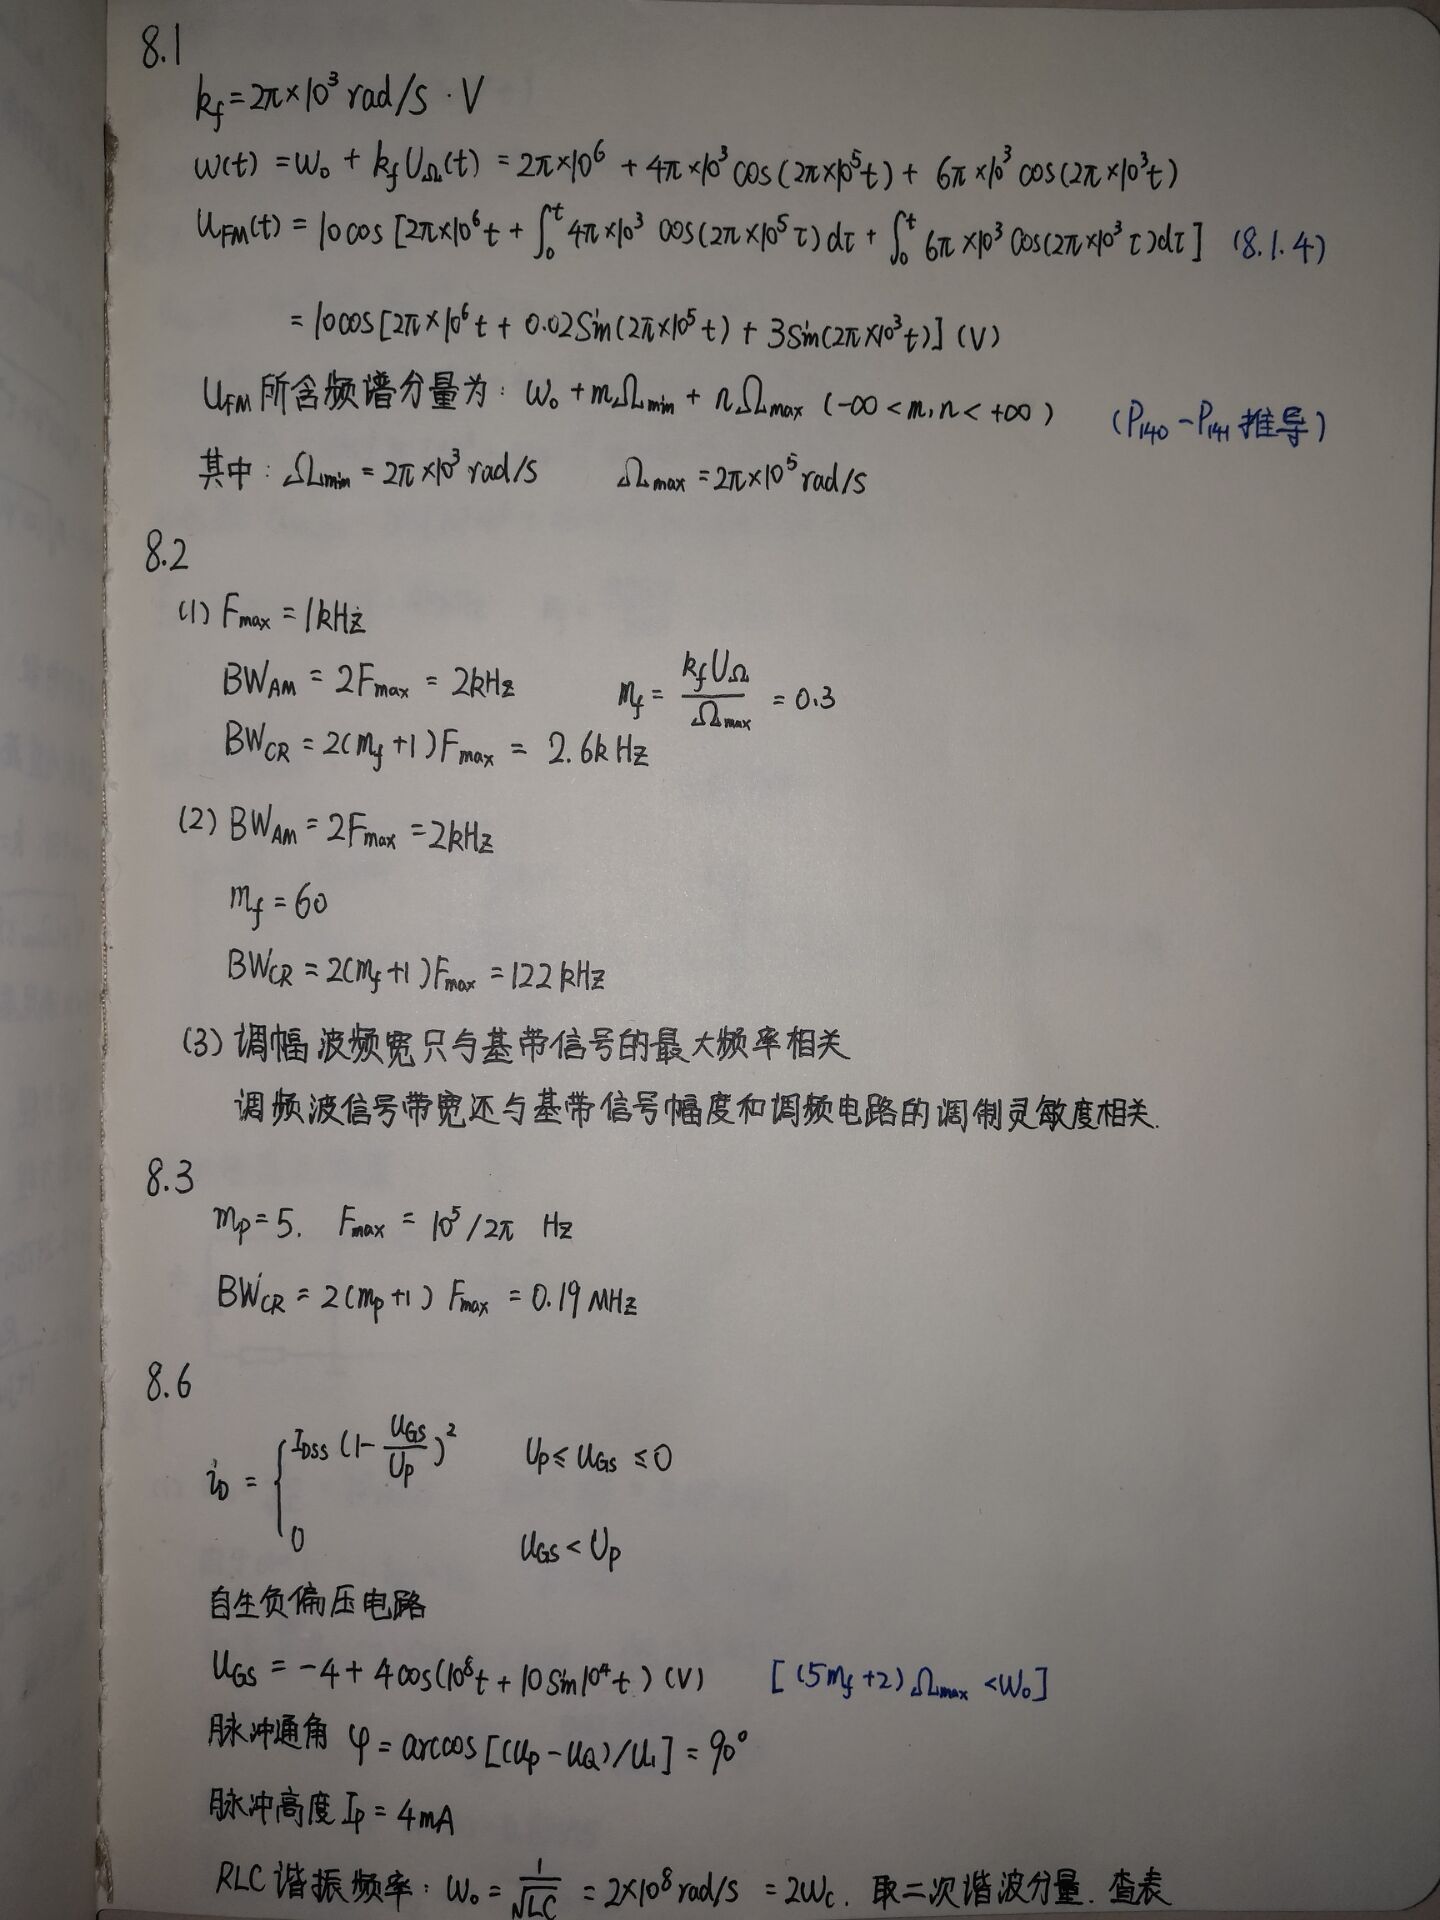 8.1
k_f = 2π×10³ rad/s · V
w(t) = w₀ + k_f U_Ω(t) = 2π×10⁶ + 4π×10³ cos(2π×10⁵t) + 6π×10³ cos(2π×10³t)
U_FM(t) = 10cos[2π×10⁶t + ∫₀ᵗ 4π×10³ cos(2π×10⁵τ)dτ + ∫₀ᵗ 6π×10³ cos(2π×10³τ)dτ] (8.1.4)
= 10cos[2π×10⁶t + 0.02Sin(2π×10⁵t) + 3Sin(2π×10³t)] (V)
U_FM 所含频谱分量为: w₀ + mΩ_min + nΩ_max (-∞ < m, n < +∞) (P140 - P141 推导)
其中: Ω_min = 2π×10³ rad/s Ω_max = 2π×10⁵ rad/s
8.2
(1) F_max = 1kHz
BW_AM = 2F_max = 2kHz m_f = k_f U_Ω / Ω_max = 0.3
BW_CR = 2(m_f+1)F_max = 2.6kHz
(2) BW_AM = 2F_max = 2kHz
m_f = 60
BW_CR = 2(m_f+1)F_max = 122kHz
(3) 调幅波频宽只与基带信号的最大频率相关
调频波信号带宽还与基带信号幅度和调频电路的调制灵敏度相关.
8.3
m_p = 5. F_max = 10⁵/2π Hz
BW_CR = 2(m_p+1) F_max = 0.19MHz
8.6
i_D = { I_DSS (1 - u_GS/U_P)² U_P ≤ u_GS ≤ 0
0 u_GS < U_P
自生负偏压电路
u_GS = -4 + 4cos(10⁸t + 10Sin10⁴t) (V) [(5m_f+2)Ω_max < w₀]
脉冲通角 φ = arccos[(U_P - U_Q)/U₁] = 90°
脉冲高度 I_P = 4mA
RLC 谐振频率: w₀ = 1/√LC = 2×10⁸ rad/s = 2w_c. 取二次谐波分量. 查表